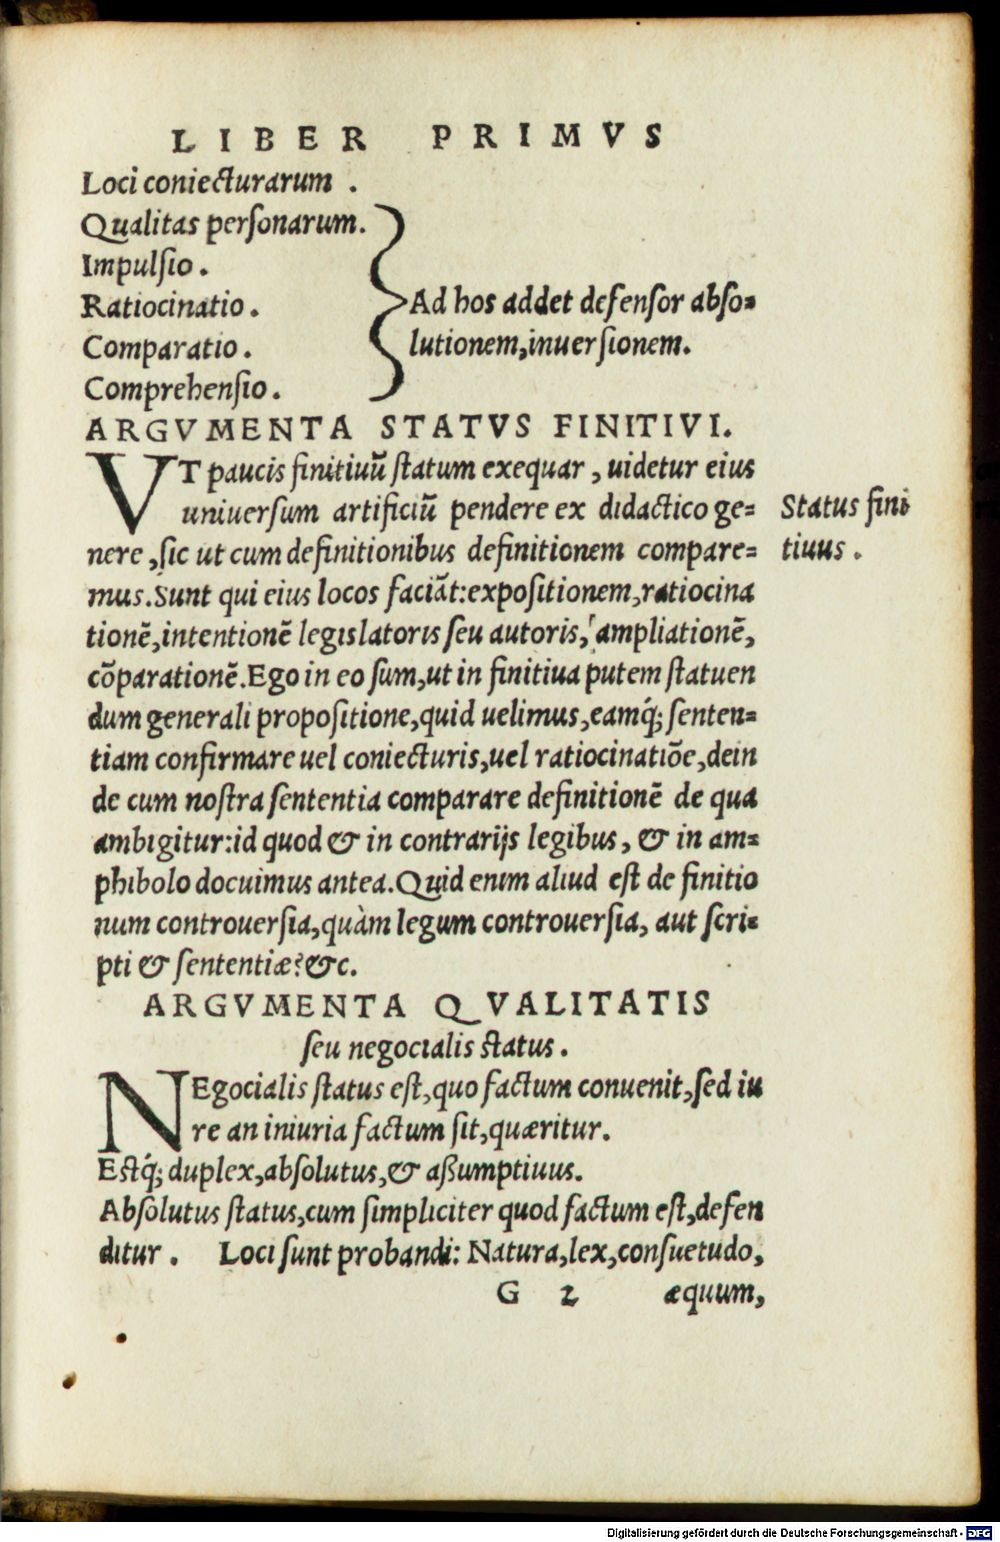 LIBER PRIMVS
Loci coniecturarum .
Qualitas perſonarum.
Impulſio .
Ratiocinatio .
Comparatio .
Comprehenſio .
Ad hos addet defenſor abſo=
lutionem,inuerſionem.
ARGVMENTA STATVS FINITIVI.
VT paucis finitiuū ſtatum exequar , uidetur eius
uniuerſum artificiū pendere ex didactico ge=
nere ,ſic ut cum definitionibus definitionem compare=
mus.Sunt qui eius locos faciāt:expoſitionem,ratiocina
tionē,intentionē legislatoris ſeu autoris, ampliationē,
cōparationē.Ego in eo ſum,ut in finitiua putem ſtatuen
dum generali propoſitione,quid uelimus,eamq́; ſenten=
tiam confirmare uel coniecturis,uel ratiocinatiōe,dein
de cum noſtra ſententia comparare definitionē de qua
ambigitur:id quod & in contrarijs legibus, & in am=
phibolo docuimus antea.Quid enim aliud eſt de finitio
num controuerſia,quàm legum controuerſia, aut ſcri=
pti & ſententiæ?&c.
Status fini
tiuus .
ARGVMENTA QVALITATIS
ſeu negocialis ſtatus .
NEgocialis ſtatus eſt,quo factum conuenit,ſed iu
re an iniuria factum ſit,quæritur.
Eſtq́; duplex,abſolutus,& aßumptiuus.
Abſolutus ſtatus,cum ſimpliciter quod factum eſt,defen
ditur . Loci ſunt probandi: Natura,lex,conſuetudo,
G 2 æquum,
Digitalisierung gefördert durch die Deutsche Forschungsgemeinschaft - DFG